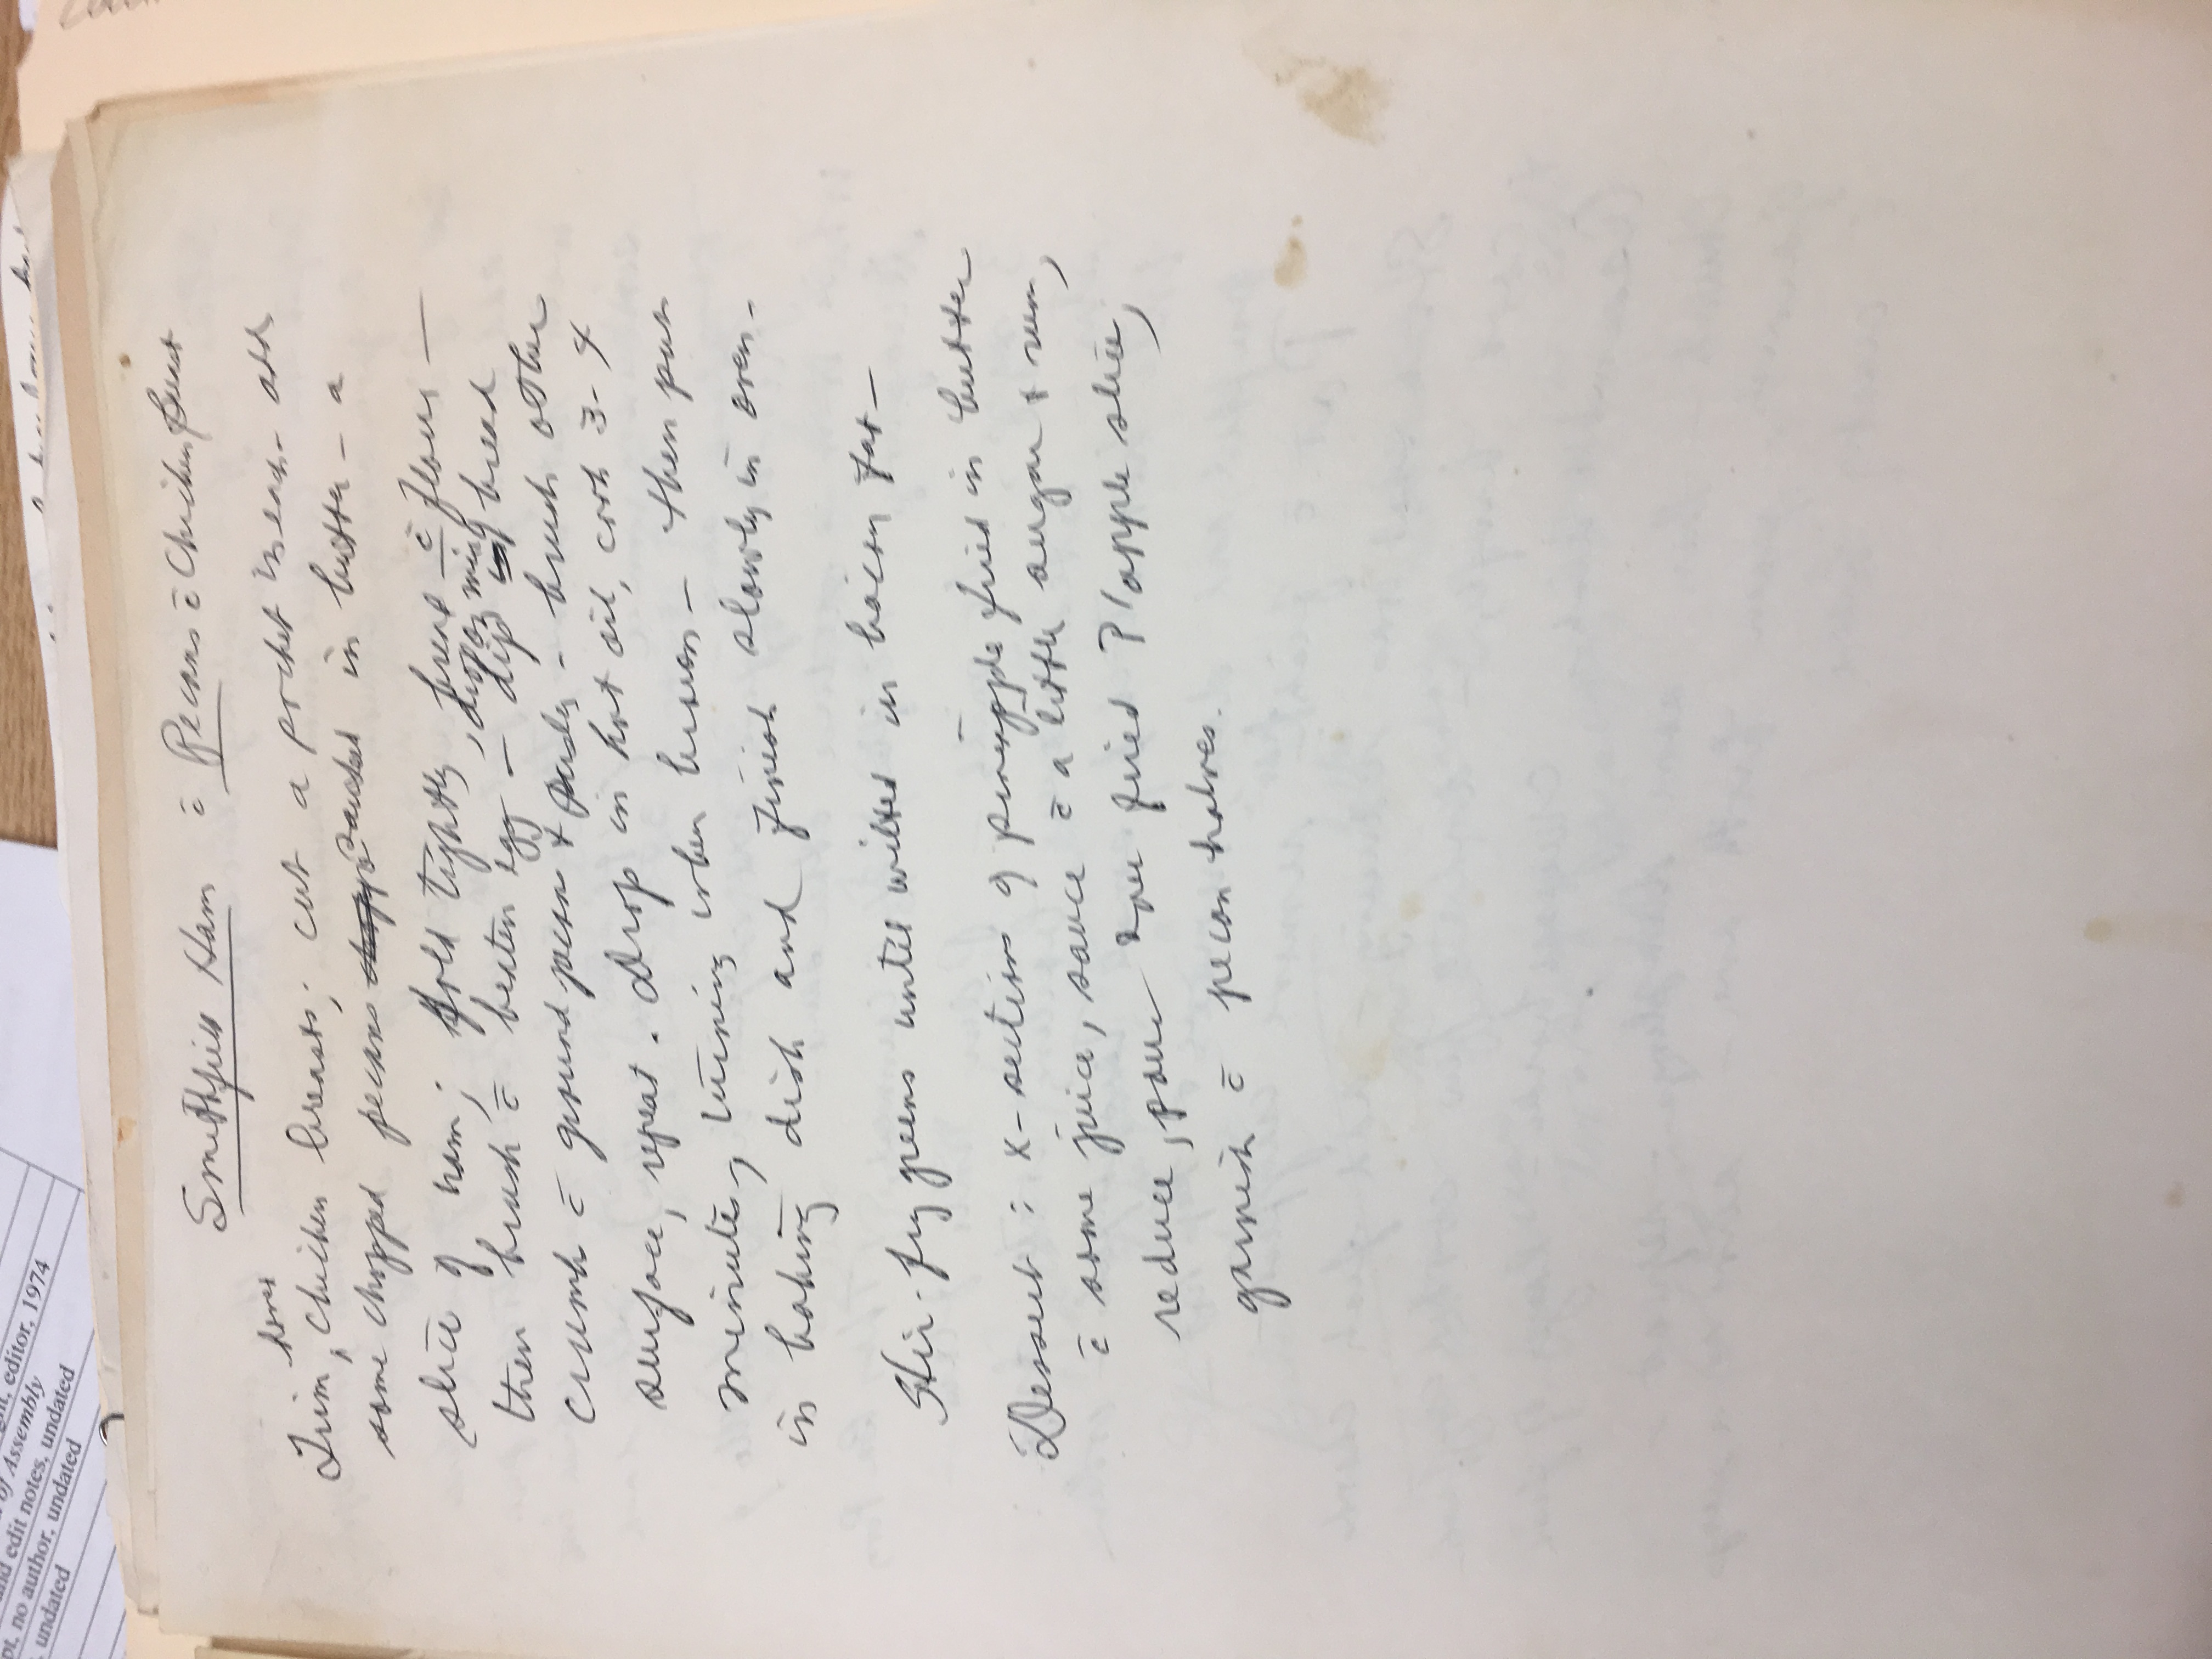 nt, editor, 1974
of Assembly
and edit notes, undated
pt, no author, undated
, undated
Smithfield Ham c̄ Pecans c̄ Chicken breast
boned
Trim, chicken breasts; cut a pocket in each - add
some chopped pecans sauteed in butter - a
slice of ham; fold tightly, bread c̄ flour —
then brush c̄ beaten egg - dip, drop on mix of bread
crumbs c̄ ground pecans + parsley - brush other
surface, repeat. Drop in hot oil, cook 3-4
minutes, turning when brown - then put
in baking dish and finish slowly in oven -
Stir-fry greens until wilted in bacon fat -
Dessert : x-sections of pineapple fried in butter
c̄ some juice, sauce c̄ a little sugar + rum,
reduce, pour over fried P/apple slice,
garnish c̄ pecan halves.